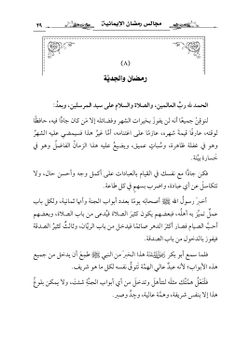 مجالس رمضان الإيمانية
٢٩
(٨)
رمضان والجديّة
الحمد لله ربِّ العالمين، والصلاة والسلام على سيد المرسلين، وبعدُ:
لتوقنْ جميعًا أنه لن يفوزَ بخيرات الشهر وفضائله إلا مَن كان جادًّا فيه، حافظًا
لوقته، عارفًا قيمةَ شهره، عازمًا على اغتنامه. أمّا غيرُ هذا فسيمضي عليه الشهرُ
وهو في غفلة ظاهرة، وسُباتٍ عميق، ويضيعُ عليه هذا الزمانُ الفاضلُ وهو في
خسارة بيِّنة.
فكن جادًّا مع نفسك في القيام بالعبادات على أكمل وجه وأحسن حال، ولا
تتكاسلْ عن أي عبادة، واضرب بسهم في كل طاعة.
أخبرَ رسولُ الله ﷺ أصحابَه يومًا بعدد أبواب الجنة وأنها ثمانية، ولكل باب
عملٌ تميّز به أهلُه، فبعضهم يكون كثيرَ الصلاة فيُدعى من باب الصلاة، وبعضهم
أحبَّ الصيام فصار أكثرَ الدهر صائمًا فيدخل من باب الريّان، وثالثٌ كثيرُ الصدقة
فيفوز بالدخول من باب الصدقة.
فلما سمع أبو بكر هذا الخبرَ من النبي ﷺ طمِعَ أن يدخل من جميع
هذه الأبواب؛ لأنه عبدٌ عالي الهمّة تَتوقُ نفسه لكل ما هو شريف.
فلتَعْلُ همّتُك مثلَه لتتأهلَ وتدخلَ من أي أبواب الجنّة شئتَ، ولا يمكن بلوغُ
هذا إلا بنفسٍ شريفة، وهمّة عالية، وجِدٍّ وصبر.